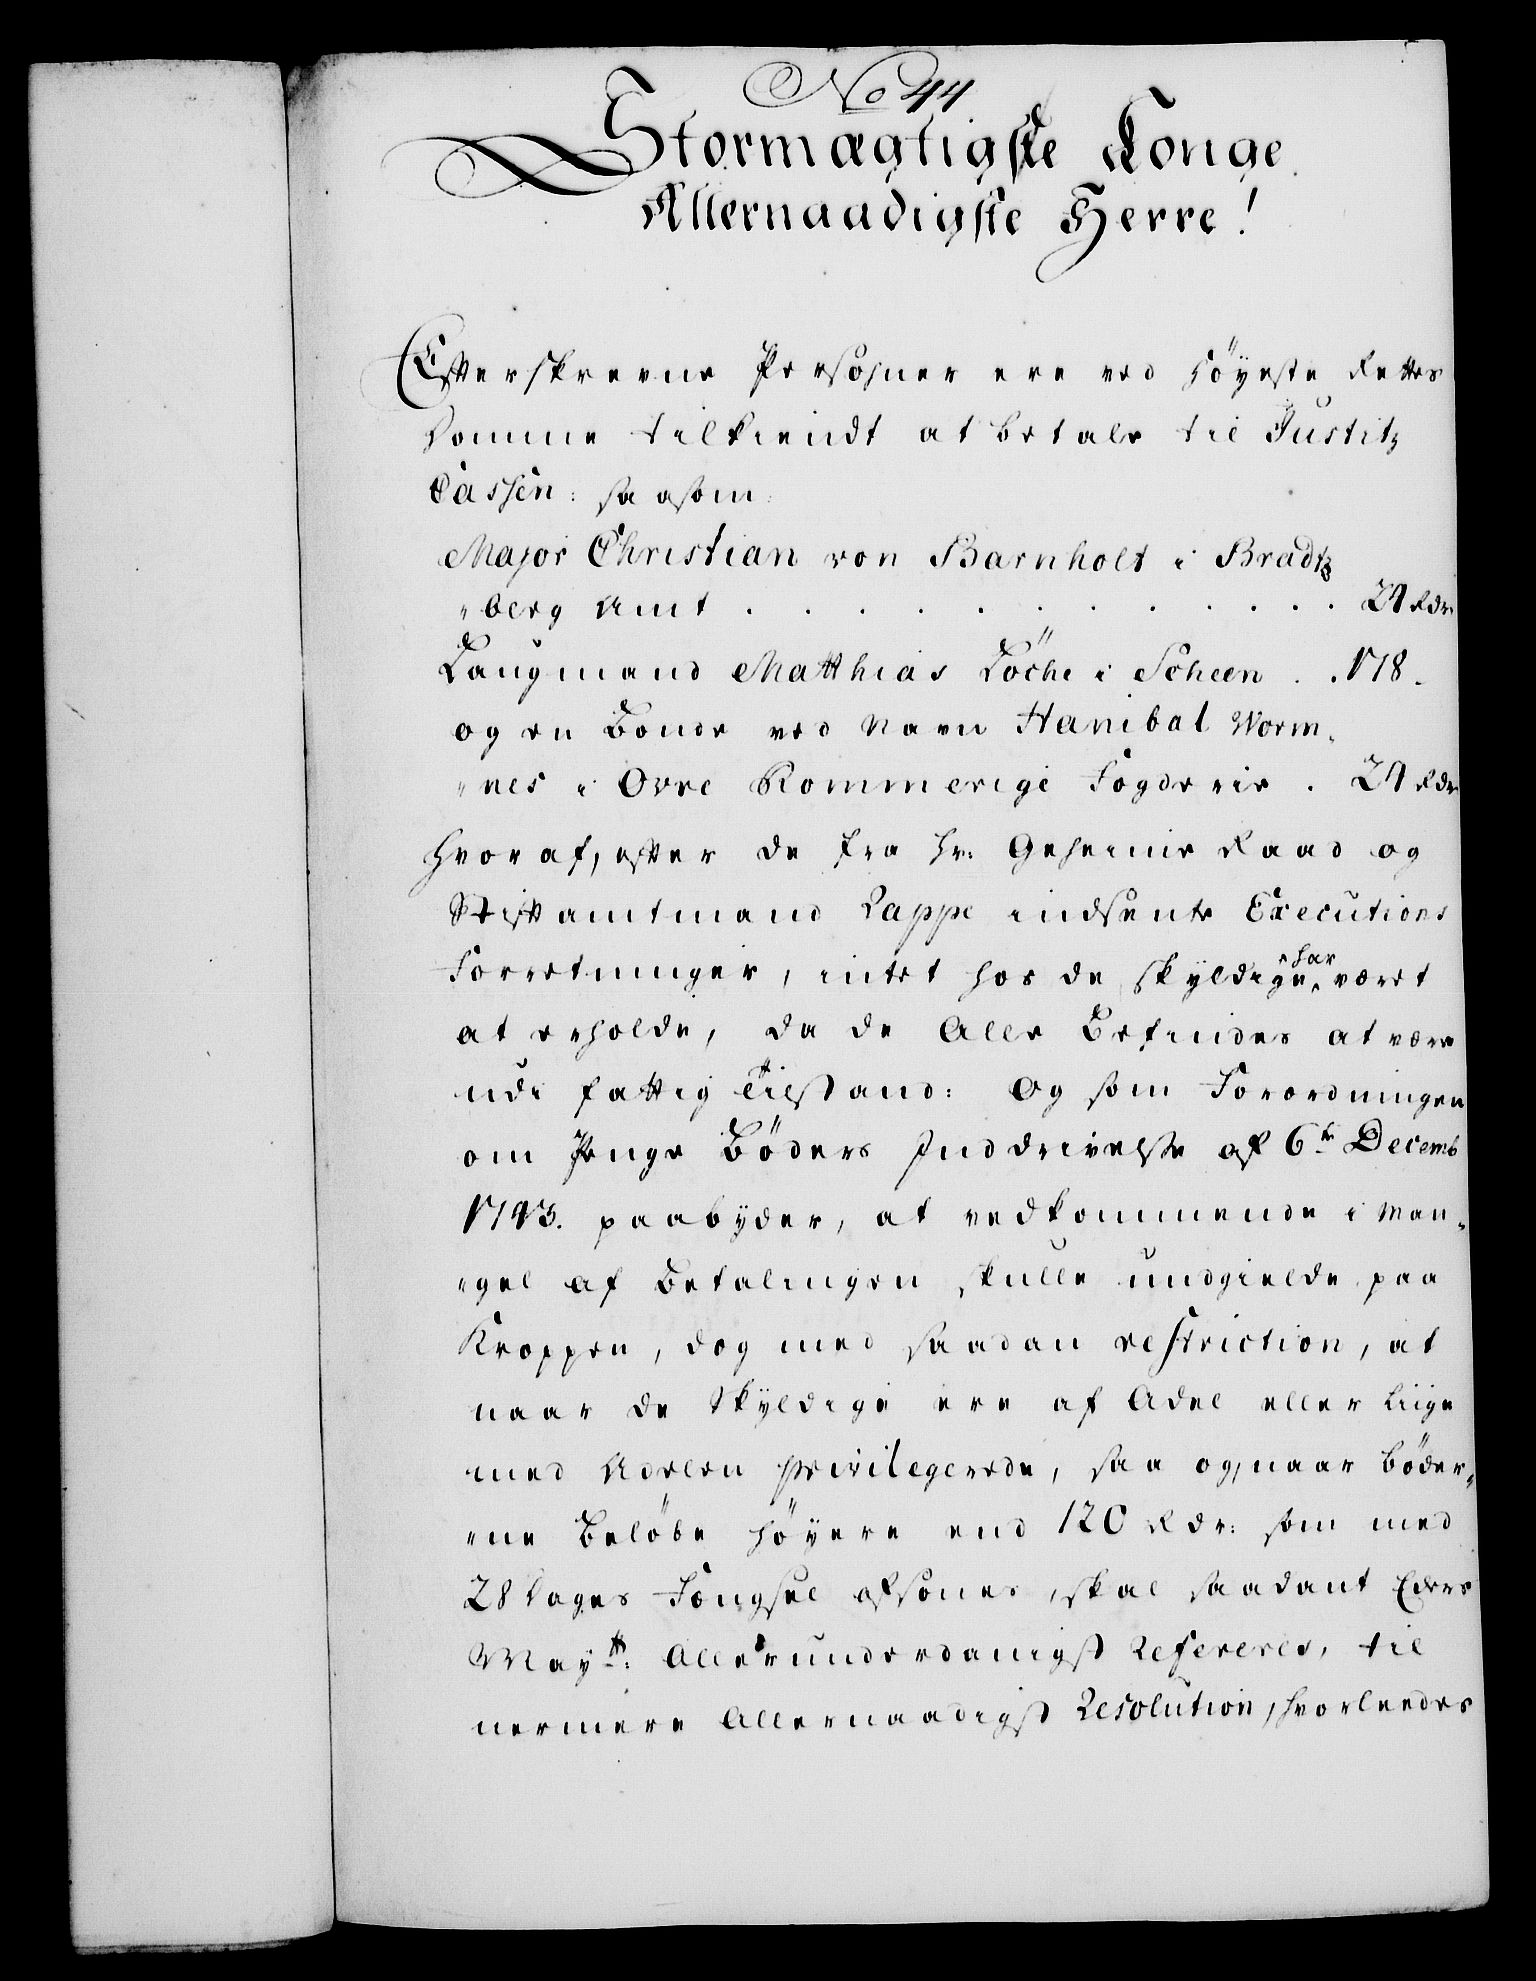 No 44
Stormægtigste Konge
Allernaadigste Herre!
Efterskrevne Persohner ere ved Höyeste Rettes
Domme tilkiendt at betale til Justitz
Cassen: saasom:
Major Christian von Barnholt i Bradtz
"berg Amt . . . . . . . . . . . 24 Rdr
Laugmand Matthias Löche i Scheen . . 178.
og en Bonde ved Navn Hanibal Worm-
"nes i Ovre Rommerige Fogderie . 24 Rdr
hvoraf, efter de fra Hr: Geheime Raad og
Stiftamtmand Rappe indsente Executions
Forretninger, intet hos de skyldige har været
at erholde, da de Alle befindes at være
udi fattig Tilstand: Og som Forordningen
om Penge Böders Inddrivelse af 6te Decemb
1743. paabyder, at vedkommende i Man-
"gel af Betalingen skulle undgielde paa
Kroppen, dog med saadan restriction, at
naar de Skyldige ere af Adel eller liige
med Adelen privilegerede, saa og, naar böder-
"ne belöbe höyere end 120 Rdr: som med
28 Dages Fængsel afsones, skal saadant Eders
Mayt: Allerunderdanigst Refereres, til
nermere Allernaadigst Resolution, hvorleedes